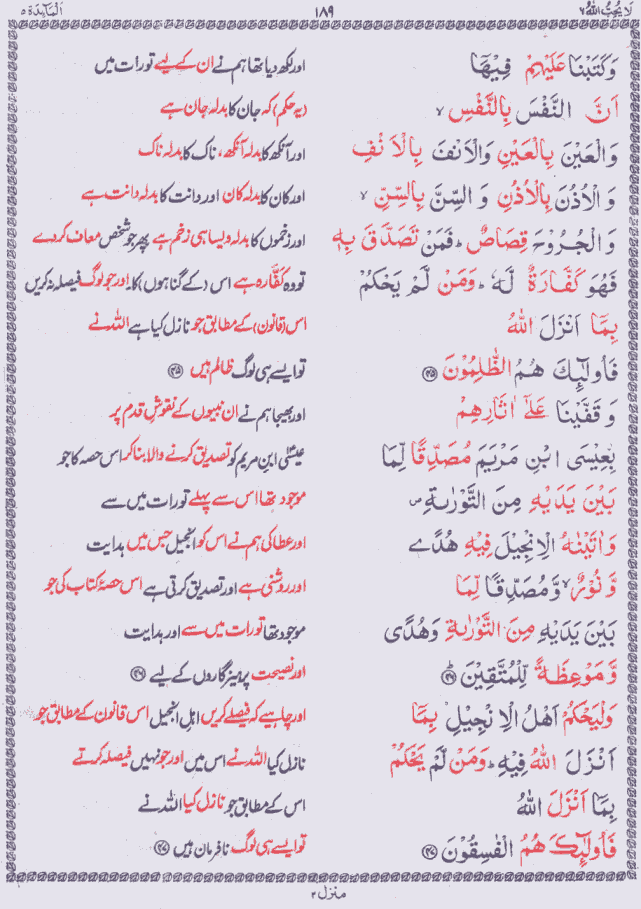 لَا يُحِبُّ اللّٰهُ ٦ ١٨٩ اَلْمَآئِدَة ٥
وَكَتَبْنَا عَلَيْهِمْ فِيْهَآ اور لکھ دیا تھا ہم نے ان کے لیے تورات میں
اَنَّ النَّفْسَ بِالنَّفْسِ ۙ (یہ حکم) کہ جان کا بدلہ جان ہے
وَالْعَيْنَ بِالْعَيْنِ وَالْاَنْفَ بِالْاَنْفِ اور آنکھ کا بدلہ آنکھ، ناک کا بدلہ ناک
وَالْاُذُنَ بِالْاُذُنِ وَالسِّنَّ بِالسِّنِّ ۙ اور کان کا بدلہ کان اور دانت کا بدلہ دانت ہے
وَالْجُرُوْحَ قِصَاصٌ ؕ فَمَنْ تَصَدَّقَ بِهٖ اور زخموں کا بدلہ ویسا ہی زخم ہے پھر جو شخص معاف کردے
فَهُوَ كَفَّارَةٌ لَّهٗ ؕ وَمَنْ لَّمْ يَحْكُمْ تو وہ کفّارہ ہے اس (کے گناہوں) کا۔ اور جو لوگ فیصلہ نہ کریں
بِمَآ اَنْزَلَ اللّٰهُ اس (قانون) کے مطابق جو نازل کیا ہے اللہ نے
فَاُولٰٓئِكَ هُمُ الظّٰلِمُوْنَ ۴۵ تو ایسے ہی لوگ ظالم ہیں ۴۵
وَقَفَّيْنَا عَلٰٓى اٰثَارِهِمْ اور بھیجا ہم نے ان نبیوں کے نقوشِ قدم پر
بِعِيْسَى ابْنِ مَرْيَمَ مُصَدِّقًا لِّمَا عیسٰی ابنِ مریم کو تصدیق کرنے والا بنا کر اس حصہ کا جو
بَيْنَ يَدَيْهِ مِنَ التَّوْرٰىةِ ۪ موجود تھا اس سے پہلے تورات میں سے
وَاٰتَيْنٰهُ الْاِنْجِيْلَ فِيْهِ هُدًى اور عطا کی ہم نے اس کو انجیل جس میں ہدایت
وَّنُوْرٌ ۙ وَّمُصَدِّقًا لِّمَا اور روشنی ہے اور تصدیق کرتی ہے اس حصۂ کتاب کی جو
بَيْنَ يَدَيْهِ مِنَ التَّوْرٰىةِ وَهُدًى موجود تھا تورات میں سے اور ہدایت
وَّمَوْعِظَةً لِّلْمُتَّقِيْنَ ؕ ۴۶ اور نصیحت پرہیزگاروں کے لیے ۴۶
وَلْيَحْكُمْ اَهْلُ الْاِنْجِيْلِ بِمَآ اور چاہیے کہ فیصلے کریں اہلِ انجیل اس قانون کے مطابق جو
اَنْزَلَ اللّٰهُ فِيْهِ ؕ وَمَنْ لَّمْ يَحْكُمْ نازل کیا اللہ نے اس میں اور جو نہیں فیصلہ کرتے
بِمَآ اَنْزَلَ اللّٰهُ اس کے مطابق جو نازل کیا اللہ نے
فَاُولٰٓئِكَ هُمُ الْفٰسِقُوْنَ ۴۷ تو ایسے ہی لوگ نافرمان ہیں ۴۷
منزل ۲